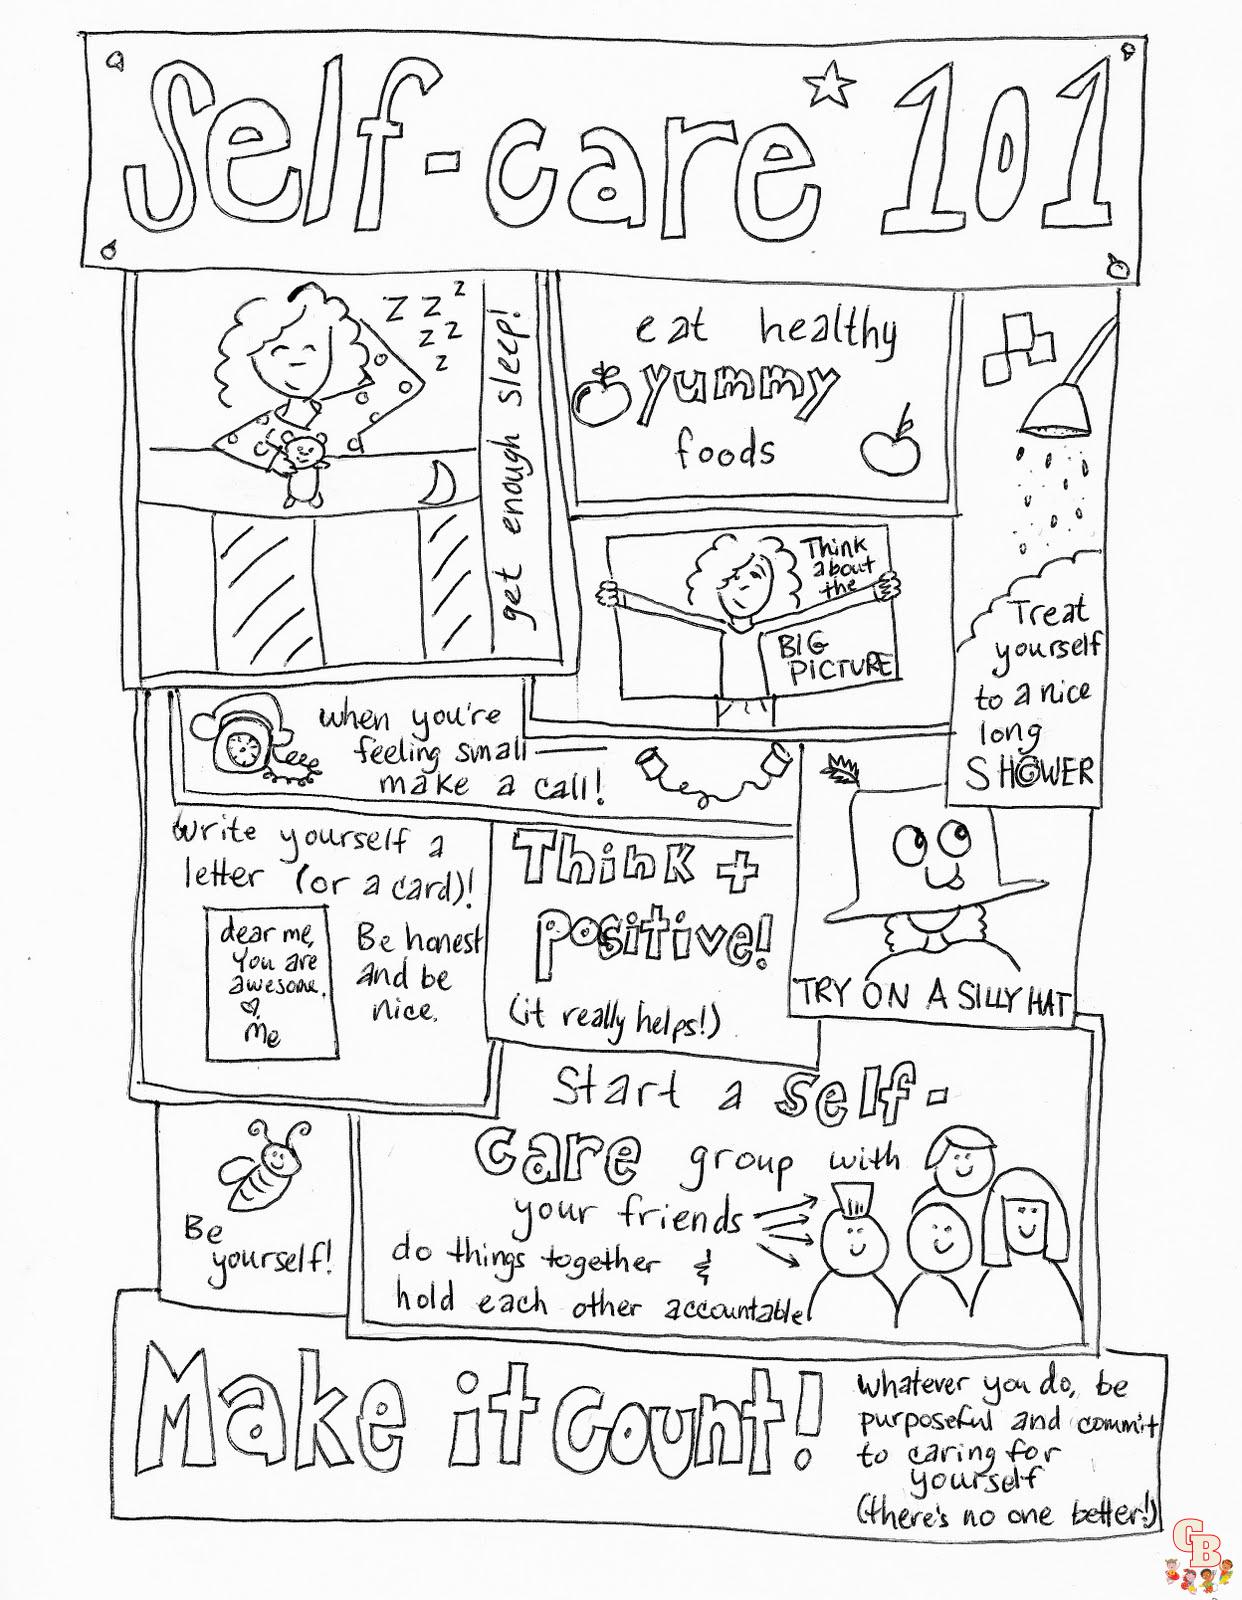 Self-care 101
z z z
z z
z
get enough sleep!
eat healthy
yummy
foods
Think
about
the
BIG
PICTURE
Treat
yourself
to a nice
long
SHOWER
when you're
feeling small
make a call!
Write yourself a
letter (or a card)!
dear me,
You are
awesome.
Me
Be honest
and be
nice.
Think +
positive!
(it really helps!)
TRY ON A SILLY HAT
Start a self-
care group with
your friends
do things together &
hold each other accountable
Be
yourself!
Make it count!
whatever you do, be
purposeful and commit
to caring for
yourself
(there's no one better!)
GB